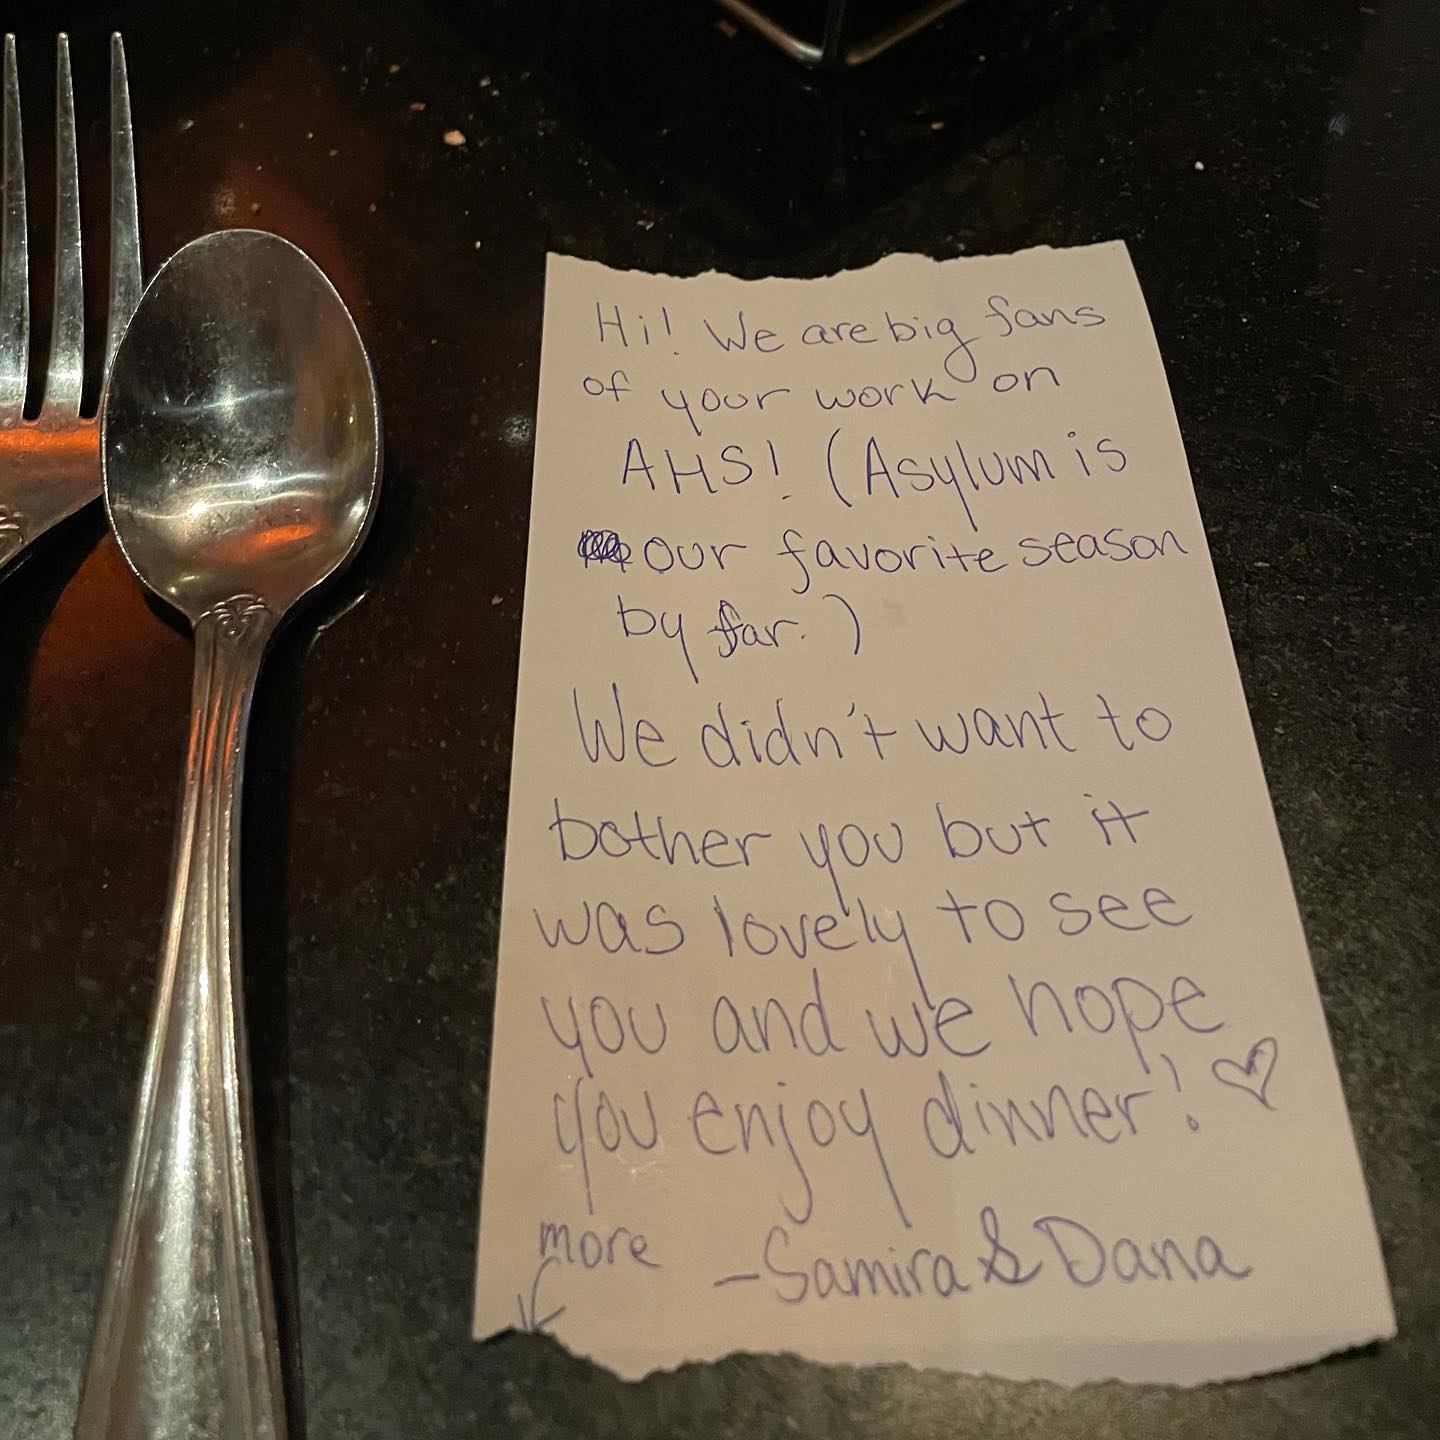 Hi! We are big fans
of your work on
AHS! (Asylum is
our favorite season
by far.)
We didn't want to
bother you but it
was lovely to see
you and we hope
you enjoy dinner! ♡
more
-Samira & Dana